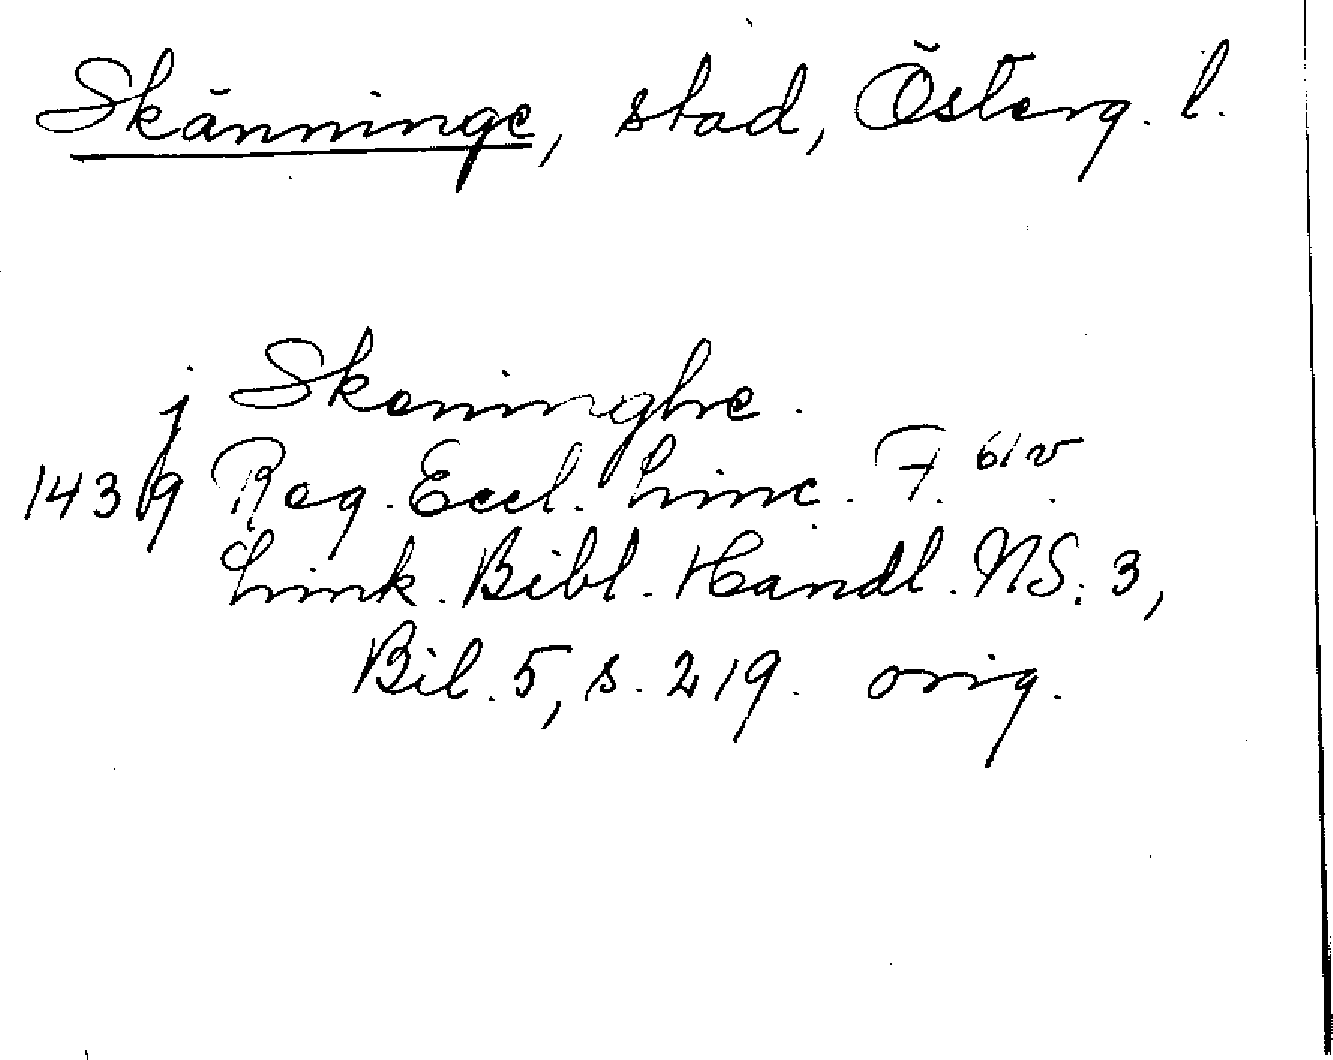 Skänninge, stad, Österg. l.
j Skeninghe.
1439 Reg. Eccl. Linc. F. 61v.
Link. Bibl. Handl. NS. 3,
Bil. 5, s. 219. orig.